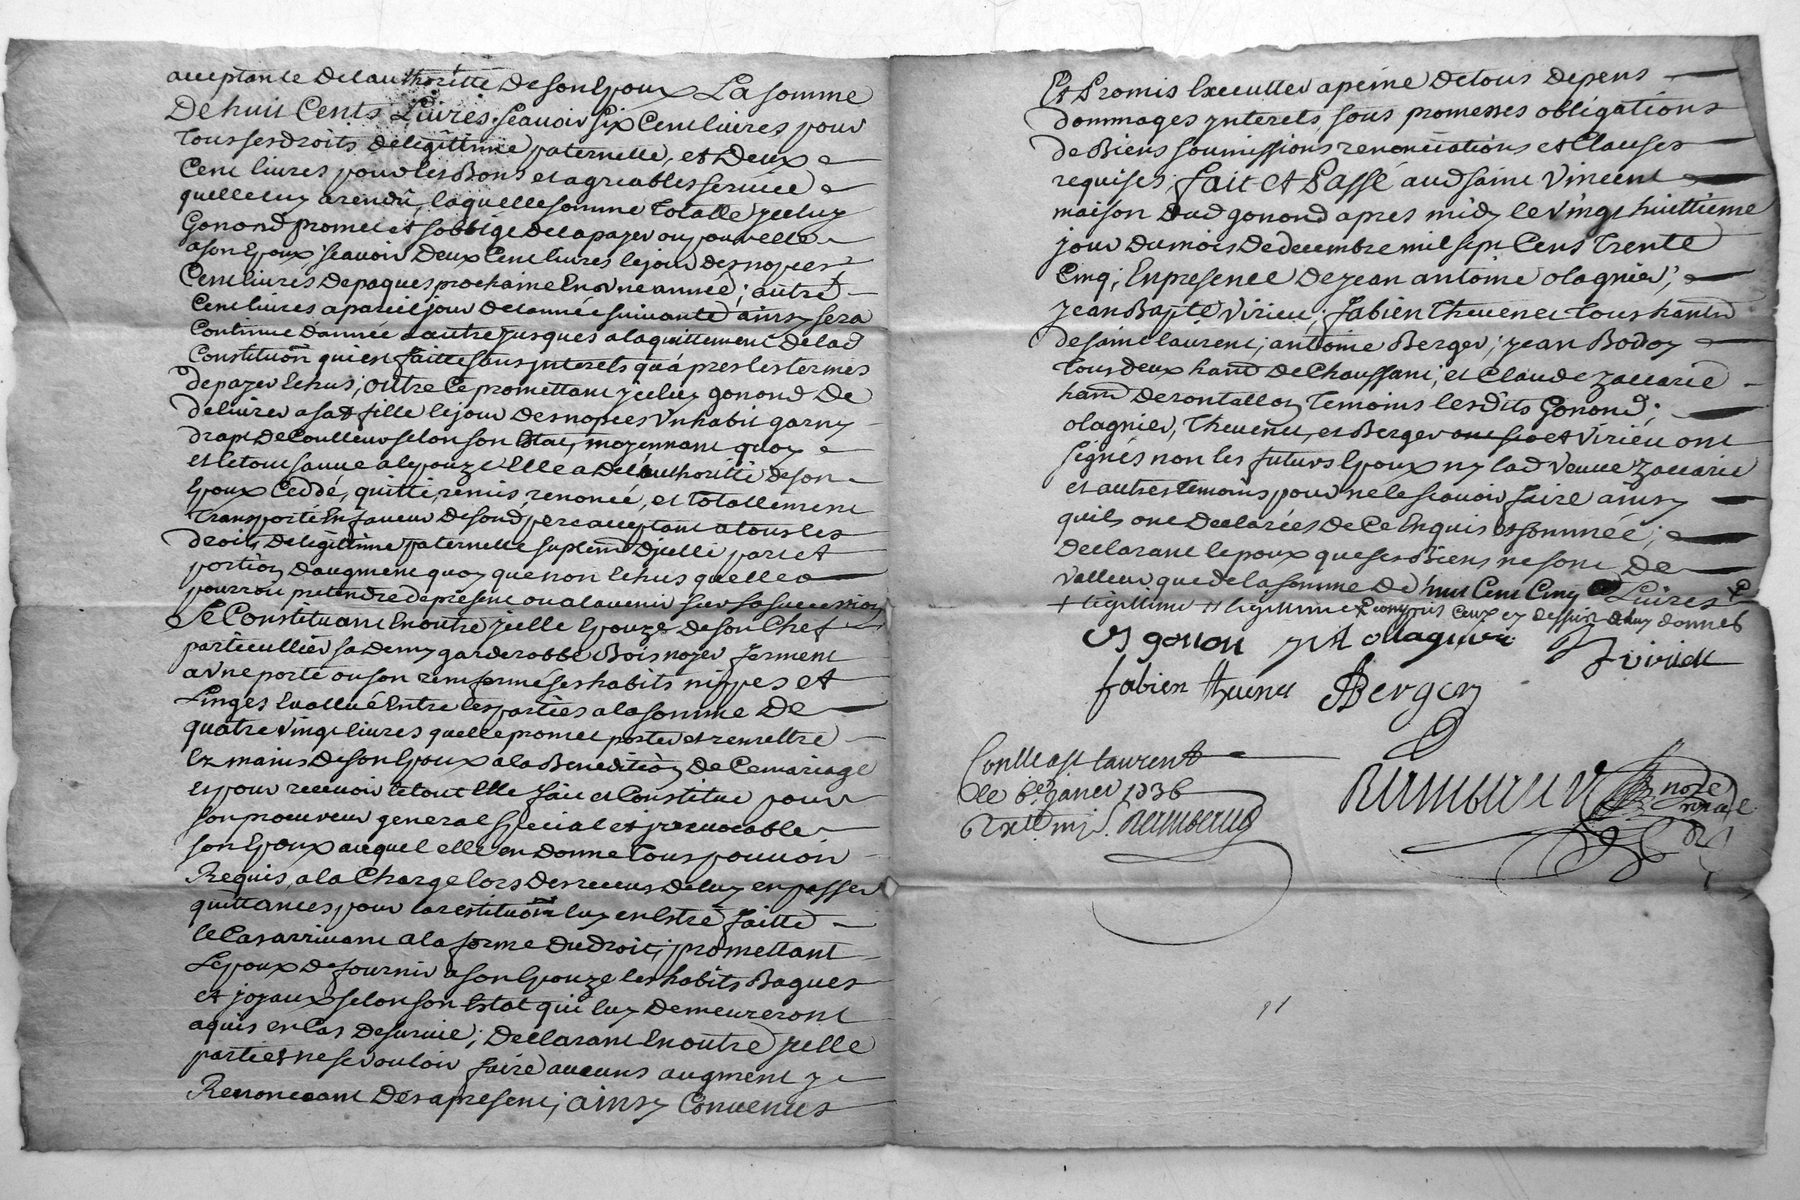 acceptante de lauthoritté de son Epoux La somme
De huit Cents Livres, scavoir six Cent livres pour
Tous ses droits de legittime paternelle, et Deux
Cent livres pour les Bons et agreables service
quelle luy a rendû, laquelle somme Totalle yceluy
Gonond promet et sobblige de la payer ou pour elle
a son Epoux scavoir deux Cent livres le jour des nopces
Cent livres de paques prochaine En une année; autre
Cent livres a pareil jour de lannée suivante ainsy sera
Continué d'année a autre jusques a laquittement de lad
Constitu͠on qui est faitte sans jnterets qu'a pres les termes
de payer Echus; outre Ce promettant yceluy gonond De
delivrer a sad fille le jour des nopces Un habit garny
drap De Coulleur selon son Estat, moyennant quoy
et le tout sauve a lepouze Elle a De lauthoritté de son
Epoux Ceddé, quitté, remis, renoncé, et totallement
Transporté En faveur de sond pere acceptant a tous les
droits de legittime paternelle suplem̄ Djcelle part et
portion daugment quoy que non Echus quelle
pourroit pretendre de present ou a lavenir sur sa succession
Se Constituant En outre ycelle Epouze de son Chef
particullier sa demy garderobbe Bois noyer ferment
a une porte ou son renfermé ses habits nippes et
Linges Evallué Entre les parties a la somme De
quatre vingt livres quelle promet porter et remettre
Ez mains de son Epoux a la Benedition de Ce mariage
et pour recevoir le tout Elle fait et Constitue pour
son procureur general special et jrrevocable
son Epoux auquel elle en donne tous pouvoir
Requis, a la Charge lors des receus de luy en passer
quittances pour la restitu͠on luy en Estre faitte
le Cas arrivant a la forme du droit; promettant
Lepoux de fournir a son Epouze les habits Bagues
et joyaux selon son Estat qui luy Demeureront
aquis en Cas de survie; Declarant En outre ycelle
parties ne se vouloir faire aucuns augment y
Renonceant Des a present; ainsy Convenus
Et Promis Executter a peine de tous depens
dommages ynterets sous promesses obligations
de Biens soumissions renontiations et Clauses
requises, fait et Passé aud saint Vincent
maison dud gonond apres midy le vingt huittieme
jour du mois de decembre mil sept Cens trente
Cinq; En presence de jean antoine olagnier,
jean Bapte Virieu, fabien thevenet tous habn̄
de saint laurent; antoine Berger; jean Bodoy
tous deux habn̄ de Chaussant; et Claude Zaccarie
habn̄ de rontallon temoins lesdits Gonond;
olagnier, thevenet, et Berger et virieu ont
signés non les futurs Epoux ny lad veuve Zaccarie
et autres temoins pour ne le scavoir faire ainsy
quils ont declarées de Ce Enquis et sommée;
declarant lepoux que ses Biens ne sont De
Valleur que de la somme de huit Cent Cinq Livres
+ legittime ++ legittime Compris Ceux cy dessus a luy donnés
gonon olagnier Virieu
fabien thevenet A Berger
Conllé a st laurent
le 6e janer 1736